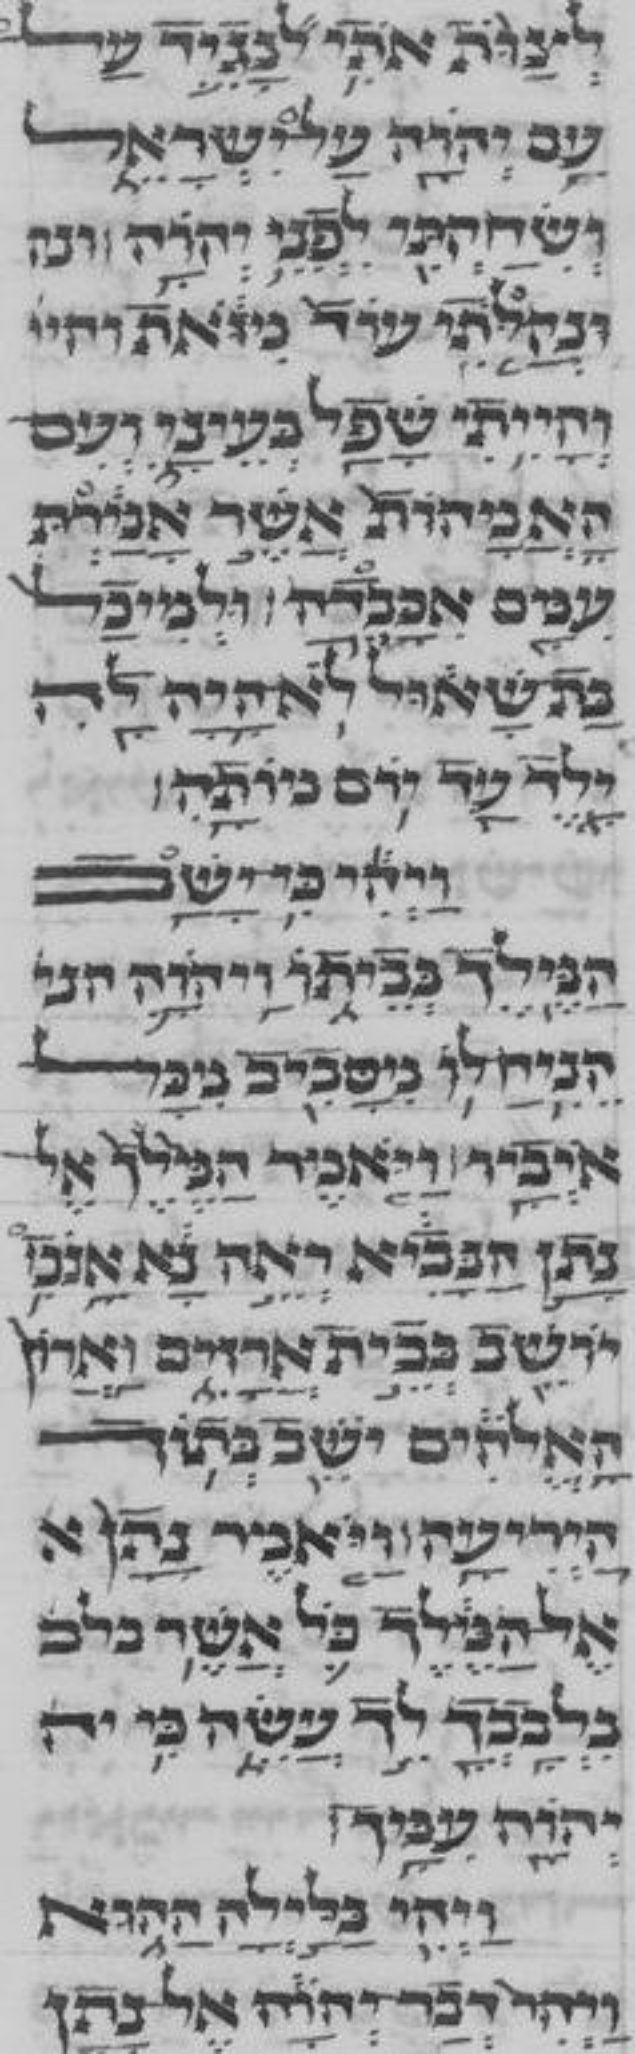 לְצַוֺּת אֹתִי לנָגִיד עַל
עַם יְהוָה עַל יִשְׂרָאֵל
וְשִׂחַקְתִּי לִפְנֵי יְהוָה׃ ונק
וּנְקַלֹּתִי עוֹד מִזֹּאת והיי
וְהָיִיתִי שָׁפָל בְּעֵינָי וְעִם
הָאֲמָהוֹת אֲשֶׁר אָמַרְתְּ
עִמָּם אִכָּבֵדָה׃ וּלְמִיכַל
בַּת שָׁאוּל לֹא הָיָה לָהּ
יָלֶד עַד יוֹם מוֹתָהּ׃
וַיְהִי כִּי יָשַׁב
הַמֶּלֶךְ בְּבֵיתוֹ וַיהוָה הני
הֵנִיחַ לוֹ מִסָּבִיב מִכָּל
אֹיְבָיו׃ וַיֹּאמֶר הַמֶּלֶךְ אֶל
נָתָן הַנָּבִיא רְאֵה נָא אָנֹכִי
יוֹשֵׁב בְּבֵית אֲרָזִים וַאֲרוֹן
הָאֱלֹהִים יֹשֵׁב בְּתוֹךְ
הַיְרִיעָה׃ וַיֹּאמֶר נָתָן א
אֶל הַמֶּלֶךְ כֹּל אֲשֶׁר בלב
בִּלְבָבְךָ לֵךְ עֲשֵׂה כִּי יה
יְהוָה עִמָּךְ׃
וַיְהִי בַּלַּיְלָה הַהוּא
וַיְהִי דְּבַר יְהוָה אֶל נָתָן